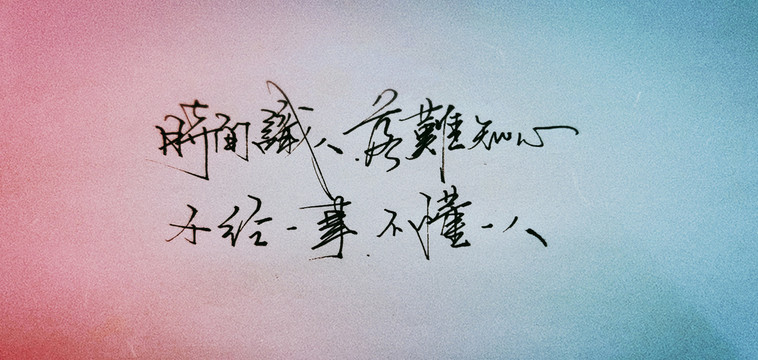 時间識人落難知心
不经一事不懂一人